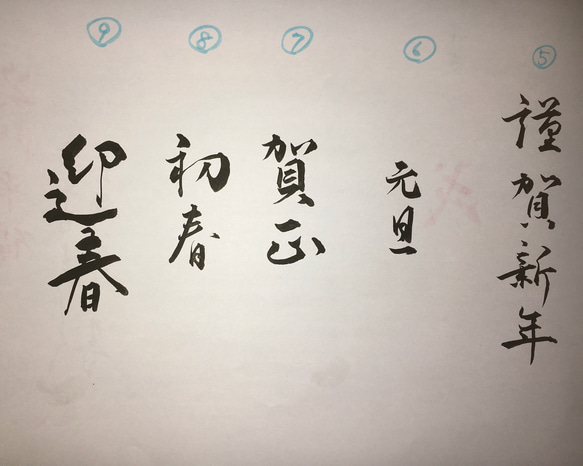 ⑤
謹賀新年
⑥
元旦
⑦
賀正
⑧
初春
⑨
迎春